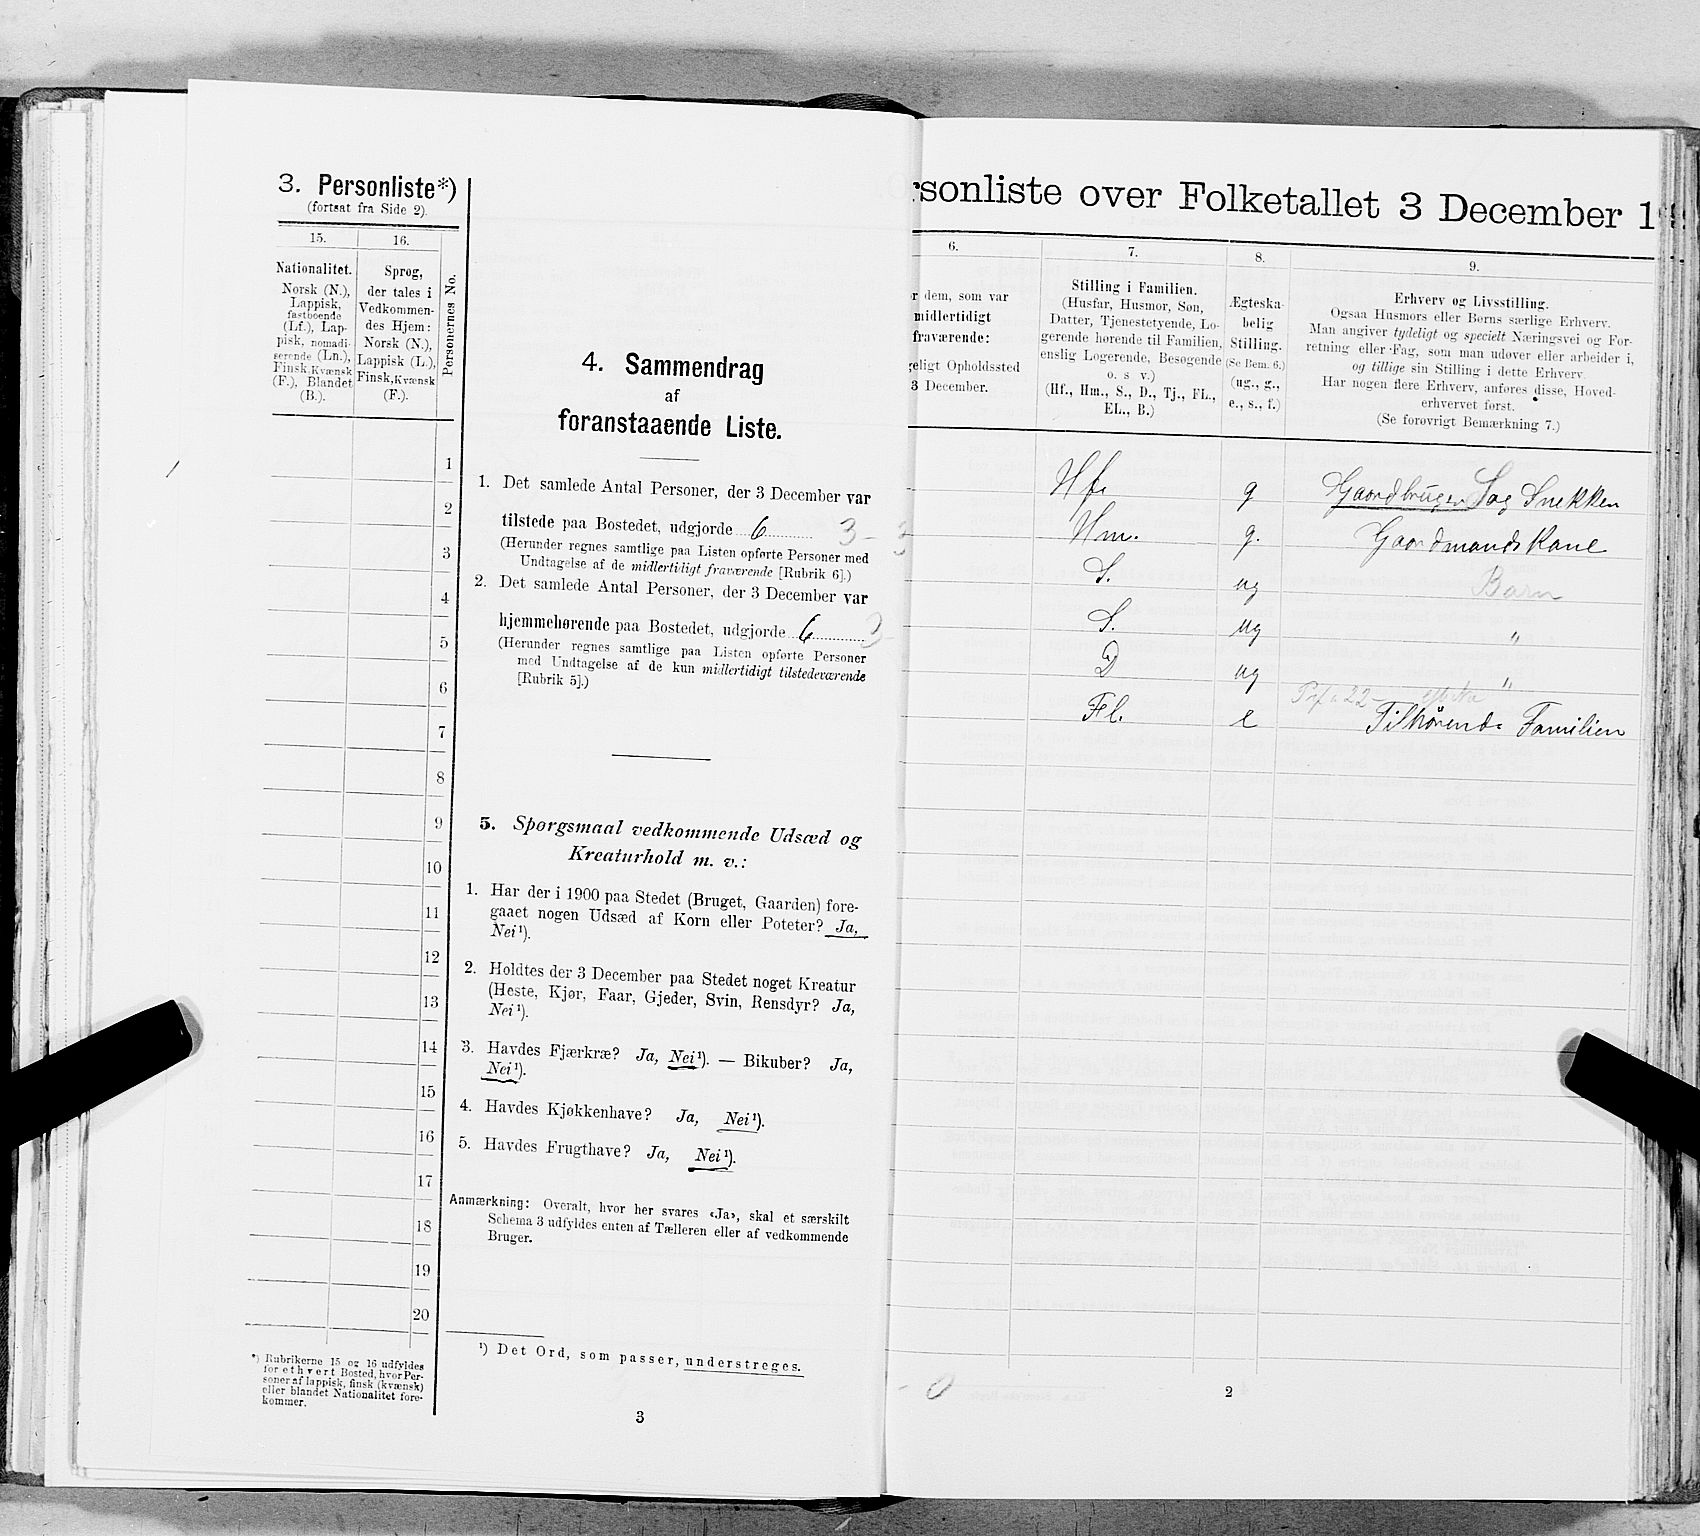 3. Personliste*)
(fortsat fra Side 2).
15.
16.
Personernes No.
Nationalitet.
Norsk (N.),
Lappisk,
fastboende
(Lf.), Lap-
pisk, nomadi-
serende (Ln.),
Finsk, Kvænsk
(F.), Blandet
(B.).
Sprog,
der tales i
Vedkommen-
des Hjem:
Norsk (N.),
Lappisk (L.),
Finsk, Kvænsk
(F.).
1
2
3
4
5
6
7
8
9
10
11
12
13
14
15
16
17
18
19
20
*) Rubrikerne 15 og 16 udfyldes
for ethvert Bosted, hvor Per-
soner af lappisk, finsk (kvænsk)
eller blandet Nationalitet fore-
kommer.
4. Sammendrag
af
foranstaaende Liste.
1. Det samlede Antal Personer, der 3 December var
tilstede paa Bostedet, udgjorde 6 3 - 3
(Herunder regnes samtlige paa Listen opførte Personer med
Undtagelse af de midlertidigt fraværende [Rubrik 6].)
2. Det samlede Antal Personer, der 3 December var
hjemmehørende paa Bostedet, udgjorde 6 3
(Herunder regnes samtlige paa Listen opførte Personer
med Undtagelse af de kun midlertidigt tilstedeværende
[Rubrik 5].)
5. Spørgsmaal vedkommende Udsæd og
Kreaturhold m. v.:
1. Har der i 1900 paa Stedet (Bruget, Gaarden) fore-
gaaet nogen Udsæd af Korn eller Poteter? Ja,
Nei¹).
2. Holdtes der 3 December paa Stedet noget Kreatur
(Heste, Kjør, Faar, Gjeder, Svin, Rensdyr? Ja,
Nei¹).
3. Havdes Fjærkræ? Ja, Nei¹). — Bikuber? Ja,
Nei¹).
4. Havdes Kjøkkenhave? Ja, Nei¹).
5. Havdes Frugthave? Ja, Nei¹).
Anmærkning: Overalt, hvor her svares «Ja», skal et særskilt
Schema 3 udfyldes enten af Tælleren eller af vedkommende
Bruger.
¹) Det Ord, som passer, understreges.
3
rsonliste over Folketallet 3 December 19
6.
7.
8.
9.
r dem, som var
midlertidigt
fraværende:
geligt Opholdssted
3 December.
Stilling i Familien.
(Husfar, Husmor, Søn,
Datter, Tjenestetyende, Lo-
gerende hørende til Familien,
enslig Logerende, Besøgende
o. s v.)
(Hf., Hm., S., D., Tj., FL.,
EL., B.)
Ægteska-
belig
Stilling.
(Se Bem. 6.)
(ug., g.,
e., s., f.)
Erhverv og Livsstilling.
Ogsaa Husmors eller Børns særlige Erhverv.
Man angiver tydeligt og specielt Næringsvei og For-
retning eller Fag, som man udøver eller arbeider i,
og tillige sin Stilling i dette Erhverv.
Har nogen flere Erhverv, anføres disse, Hoved-
erhvervet først.
(Se forøvrigt Bemærkning 7.)
Hf. g Gaardbruger Sag Snekken
Hm. g. Gaardmands Kone
S. ug Barn
S. ug "
D ug "
Fl. e Tilhørende Familien
0
2